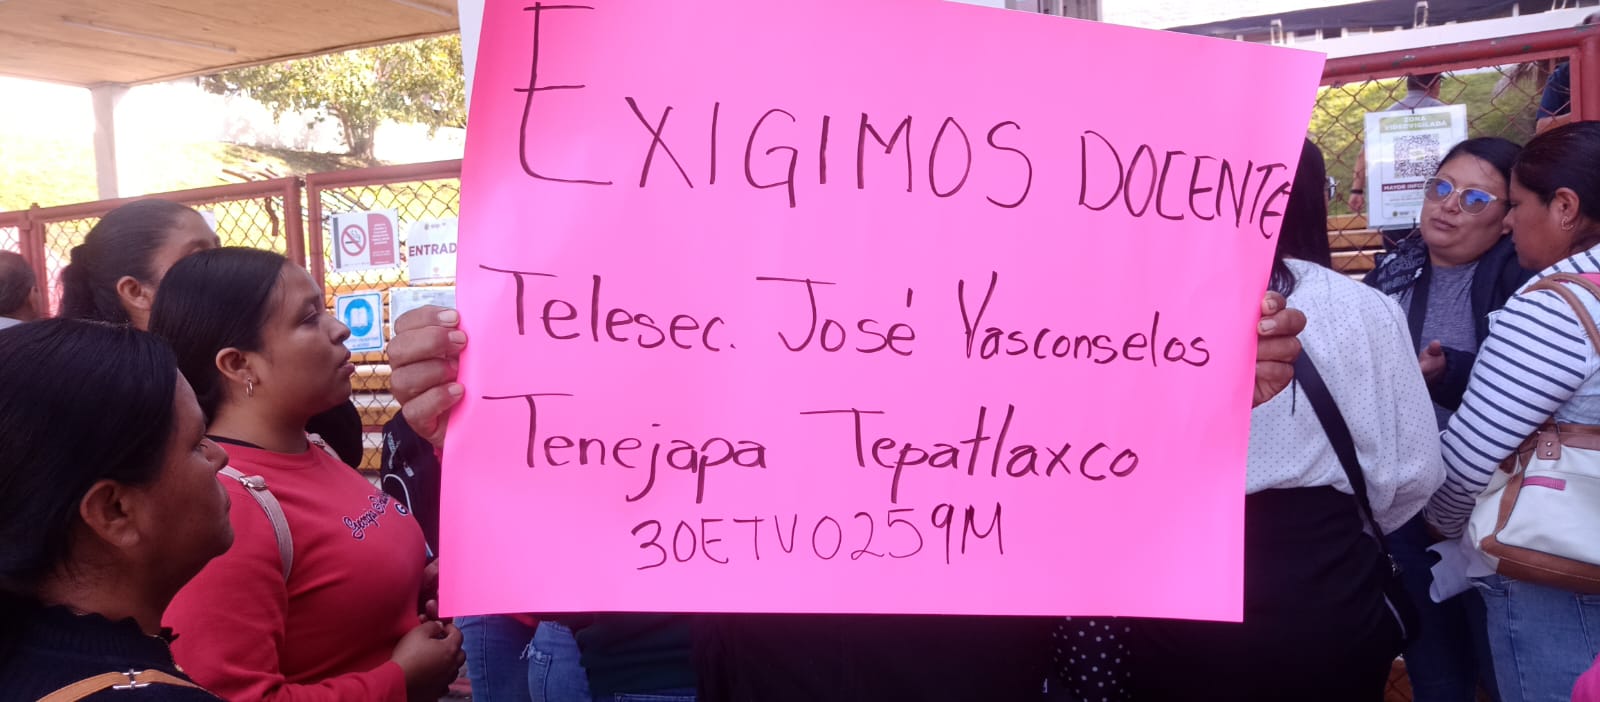 EXIGIMOS DOCENTE
Telesec. José Vasconselos
Tenejapa Tepatlaxco
30ETV0259M
ENTRAD
ZONA
VIDEOVIGILADA